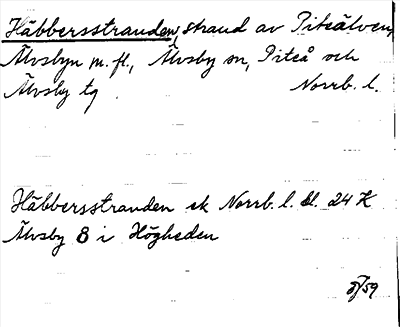 Häbbersstranden, strand av Piteälven,
Älvsbyn m.fl., Älvsby sn, Piteå och
Älvsby tg. Norrb. l.
Häbbersstranden ek Norrb. l. bl. 24 K
Älvsby 8 i Högheden
/59